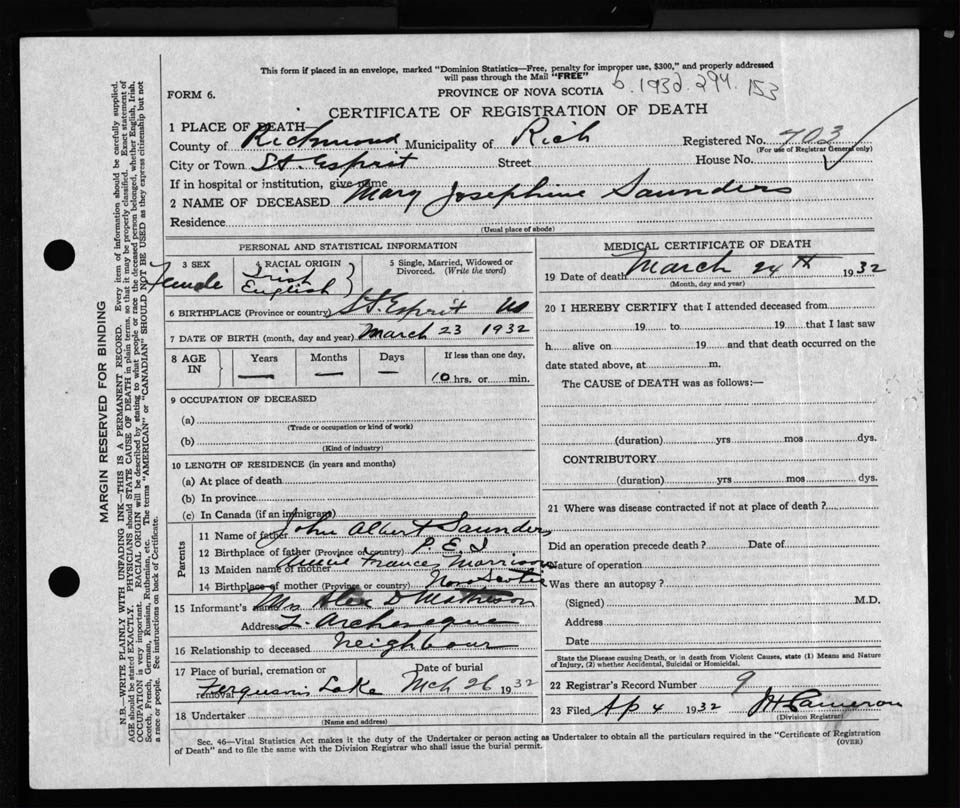 This form if placed in an envelope, marked "Dominion Statistics—Free, penalty for improper use, $300," and properly addressed
will pass through the Mail "FREE"
b. 1932. 294. 153
FORM 6.
PROVINCE OF NOVA SCOTIA
CERTIFICATE OF REGISTRATION OF DEATH
1 PLACE OF DEATH—
County of Richmond Municipality of Rich Registered No. 703
(For use of Registrar General only)
City or Town St. Esprit Street House No.
If in hospital or institution, give name
2 NAME OF DECEASED Mary Josephine Saunders
Residence
(Usual place of abode)
PERSONAL AND STATISTICAL INFORMATION
3 SEX Female
4 RACIAL ORIGIN Irish English
5 Single, Married, Widowed or Divorced. (Write the word)
6 BIRTHPLACE (Province or country) St. Esprit
7 DATE OF BIRTH (month, day and year) March 23 1932
8 AGE IN Years — Months — Days — If less than one day, 10 hrs. or min.
9 OCCUPATION OF DECEASED
(a)
(Trade or occupation or kind of work)
(b)
(Kind of industry)
10 LENGTH OF RESIDENCE (in years and months)
(a) At place of death
(b) In province
(c) In Canada (if an immigrant)
Parents
11 Name of father John Albert Saunders
12 Birthplace of father (Province or country) P. E. I
13 Maiden name of mother Annie Frances Morrison
14 Birthplace of mother (Province or country) Nova Scotia
15 Informant's name Mrs Alex D Matheson
Address L. Archeveque
16 Relationship to deceased Neighbour
17 Place of burial, cremation or removal Ferguson's Lake
Date of burial Mch 26 1932
18 Undertaker
(Name and address)
MEDICAL CERTIFICATE OF DEATH
19 Date of death March 24th 1932
(Month, day and year)
20 I HEREBY CERTIFY that I attended deceased from
19 to 19 that I last saw
h alive on 19 and that death occurred on the
date stated above, at m.
The CAUSE of DEATH was as follows:—
(duration) yrs mos dys.
CONTRIBUTORY
(duration) yrs mos dys.
21 Where was disease contracted if not at place of death?
Did an operation precede death? Date of
Nature of operation
Was there an autopsy?
(Signed) M.D.
Address
Date
State the Disease causing Death, or in death from Violent Causes, state (1) Means and Nature
of Injury, (2) whether Accidental, Suicidal or Homicidal.
22 Registrar's Record Number 9
23 Filed Ap 4 1932 Cameron
(Division Registrar)
Sec. 46—Vital Statistics Act makes it the duty of the Undertaker or person acting as Undertaker to obtain all the particulars required in the "Certificate of Registration
of Death" and to file the same with the Division Registrar who shall issue the burial permit.
(OVER)
MARGIN RESERVED FOR BINDING
N.B.—WRITE PLAINLY WITH UNFADING INK—THIS IS A PERMANENT RECORD. Every item of information should be carefully supplied.
AGE should be stated EXACTLY. PHYSICIANS should STATE CAUSE OF DEATH in plain terms, so that it may be properly classified. Exact statement of
OCCUPATION is very important. RACIAL ORIGIN will be described by stating to what people or race the deceased person belonged, whether English, Irish,
Scotch, French, German, Russian, Ruthenian, etc. The terms "AMERICAN" or "CANADIAN" SHOULD NOT BE USED as they express citizenship but not
a race or people. See instructions on back of Certificate.